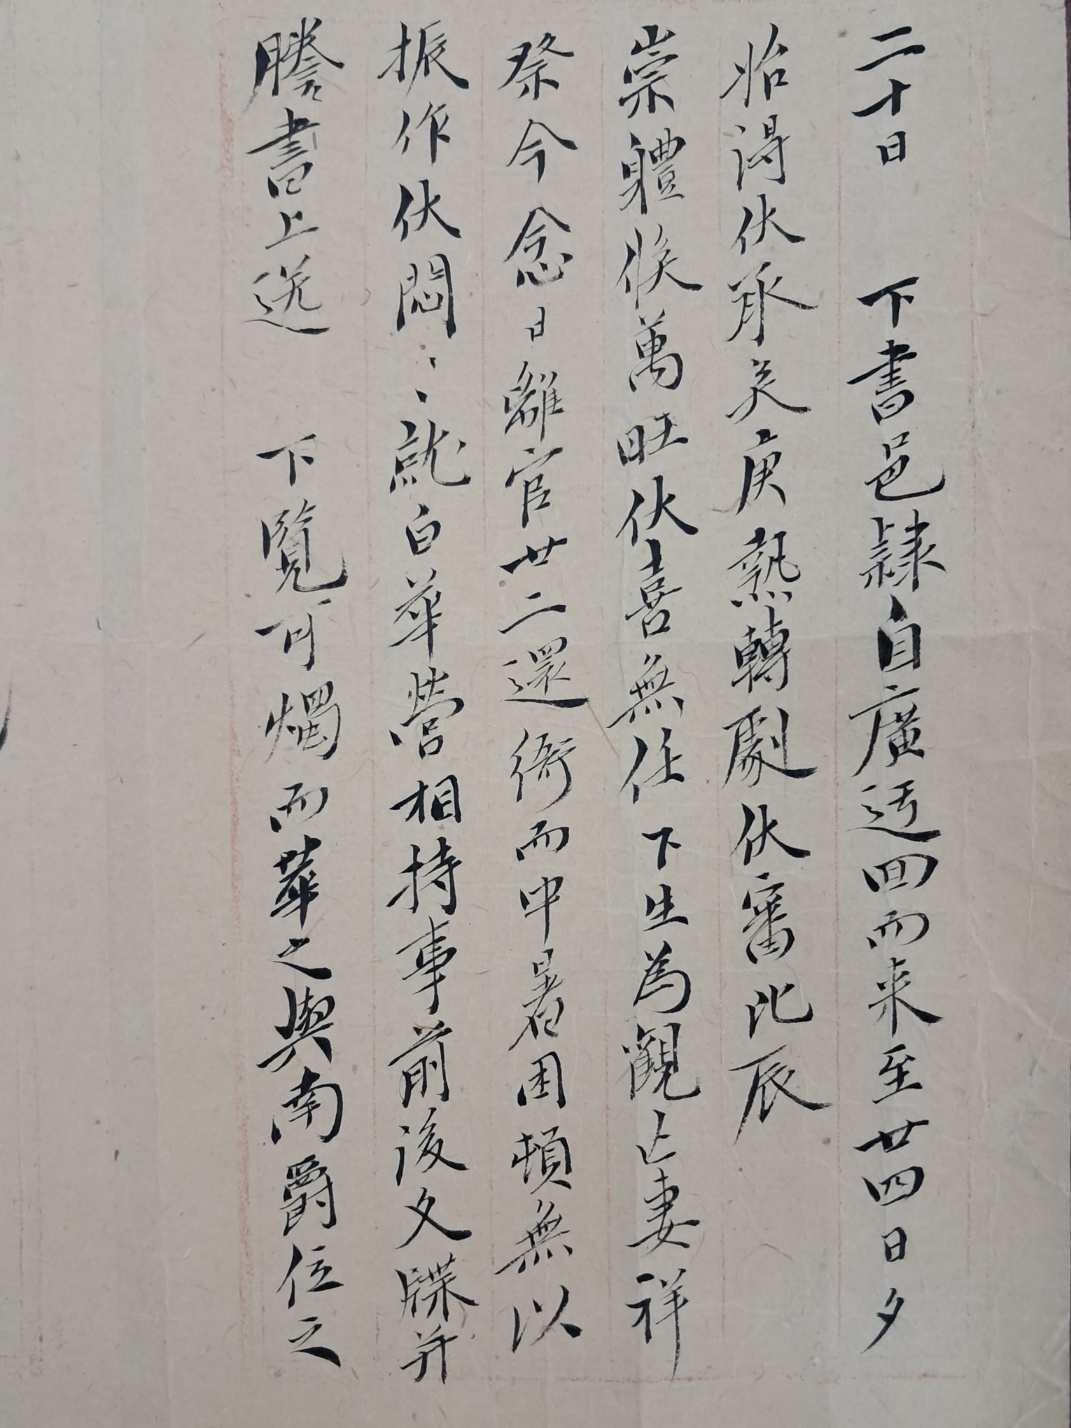 二十日　下書邑隸自廣迃回而来至廿四日夕
始得伏承矣庚熱轉劇伏審比辰
崇軆候萬旺伏喜無任　下生為觀亡妻祥
祭今念日離官廿二還衙而中暑困頓無以
振作伏悶〻就白華營相持事前後文牒并
謄書上送　下覧可燭而華之與南爵位之